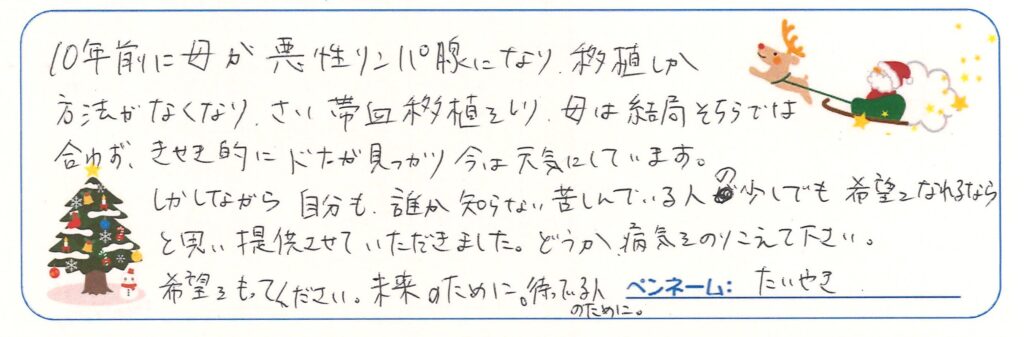 10年前に母が悪性リンパ腺になり、移植しか
方法がなくなり、さい帯血移植をしり、母は結局そちらでは
合わず、きせき的にドナが見つかり今は元気にしています。
しかしながら自分も、誰か知らない苦しんでいる人の少しでも希望となれるなら
と思い提供させていただきました。どうか病気をのりこえて下さい。
希望をもってください。未来のために。待っている人
のために。
ペンネーム: たいやき